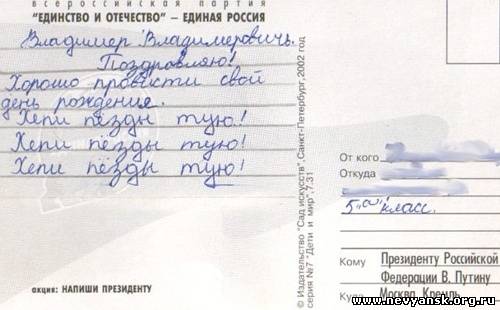 всероссийская партия
"ЕДИНСТВО И ОТЕЧЕСТВО" – ЕДИНАЯ РОССИЯ
Владимер Владимеровичь.
Поздравляю!
Хорошо провисти свой
день рождения.
Хепи пёзды тую!
Хепи пёзды тую!
Хепи пёзды тую!
акция: НАПИШИ ПРЕЗИДЕНТУ
© Издательство "Сад искусств", Санкт-Петербург, 2002 год
серия №7 "Дети и мир", 7.31
От кого
Откуда
5 "а" класс.
Кому Президенту Российской
Федерации В. Путину
Куда Москва, Кремль
www.nevyansk.org.ru